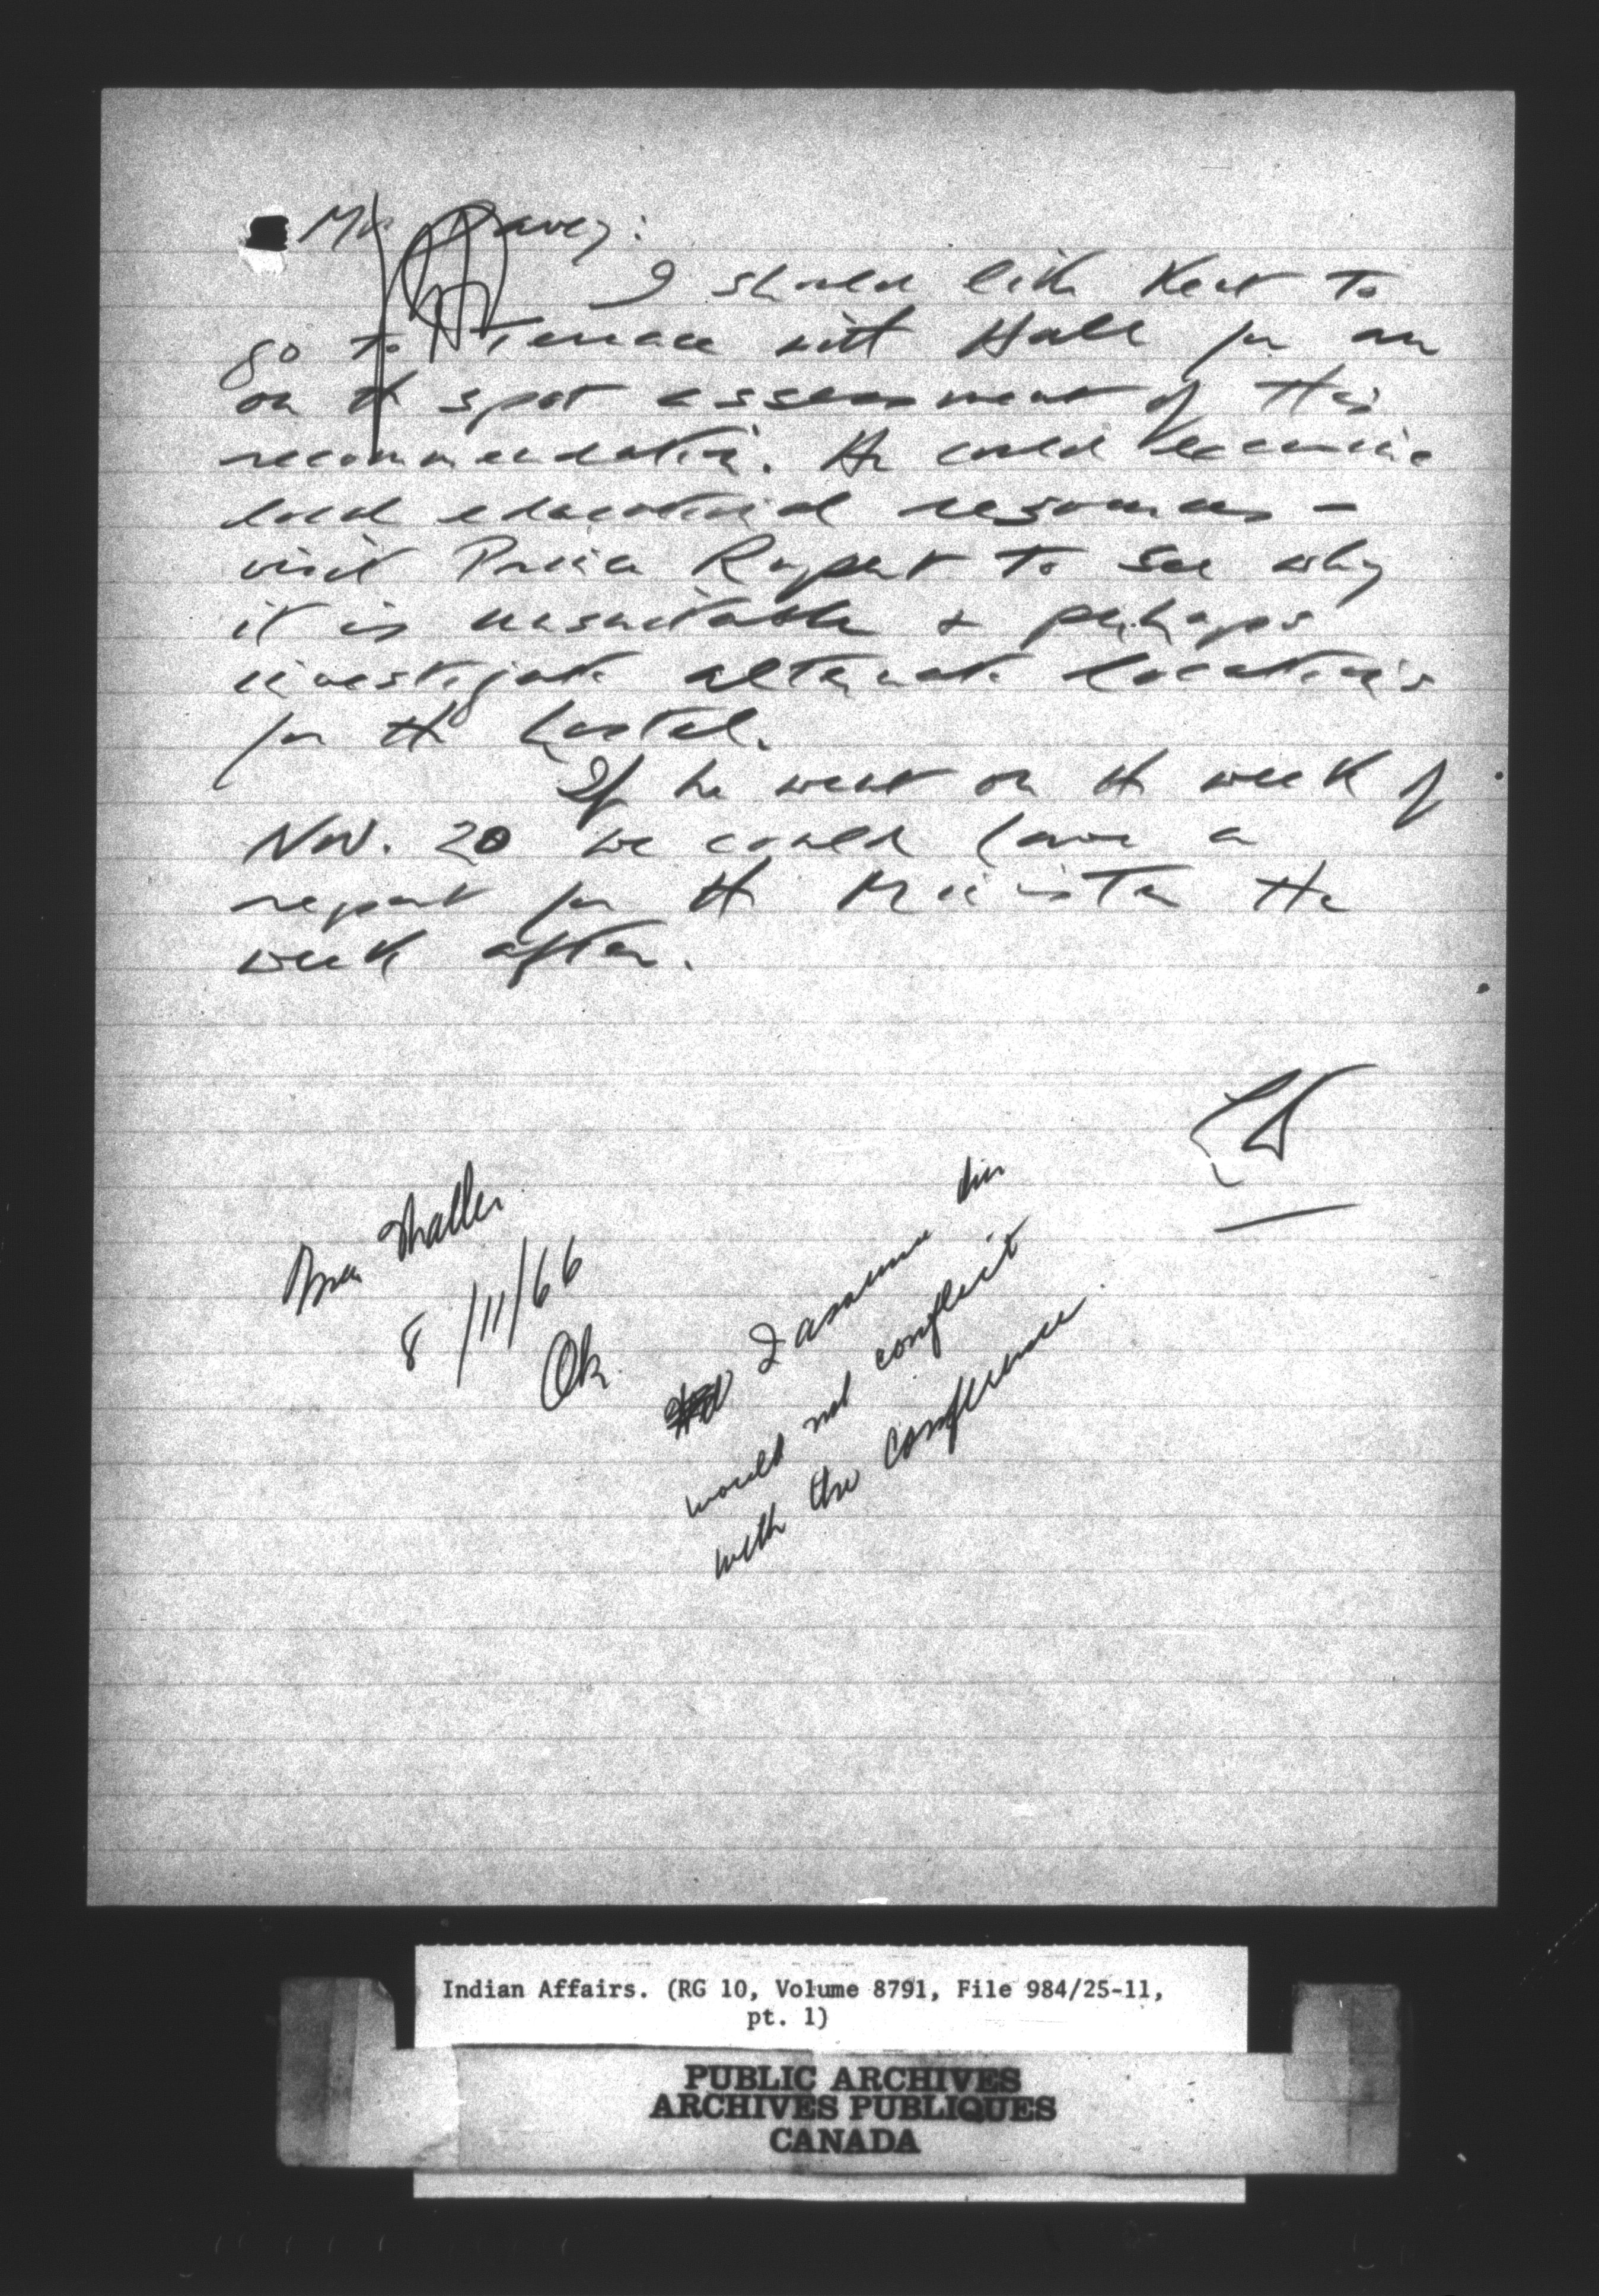 Mr Davey:
I should like Kent to
go to Terrace with Hall for an
on the spot assessment of this
recommendation. He could examine
local educational resources -
visit Prince Rupert to see why
it is unsuitable & perhaps
investigate alternate locations
for the hostel.
If he went on the week of
Nov. 20 we could have a
report for the Minister the
week after.
8/11/66
Ok.
I assume
would not conflict
with the conference.
Indian Affairs. (RG 10, Volume 8791, File 984/25-11,
pt. 1)
PUBLIC ARCHIVES
ARCHIVES PUBLIQUES
CANADA